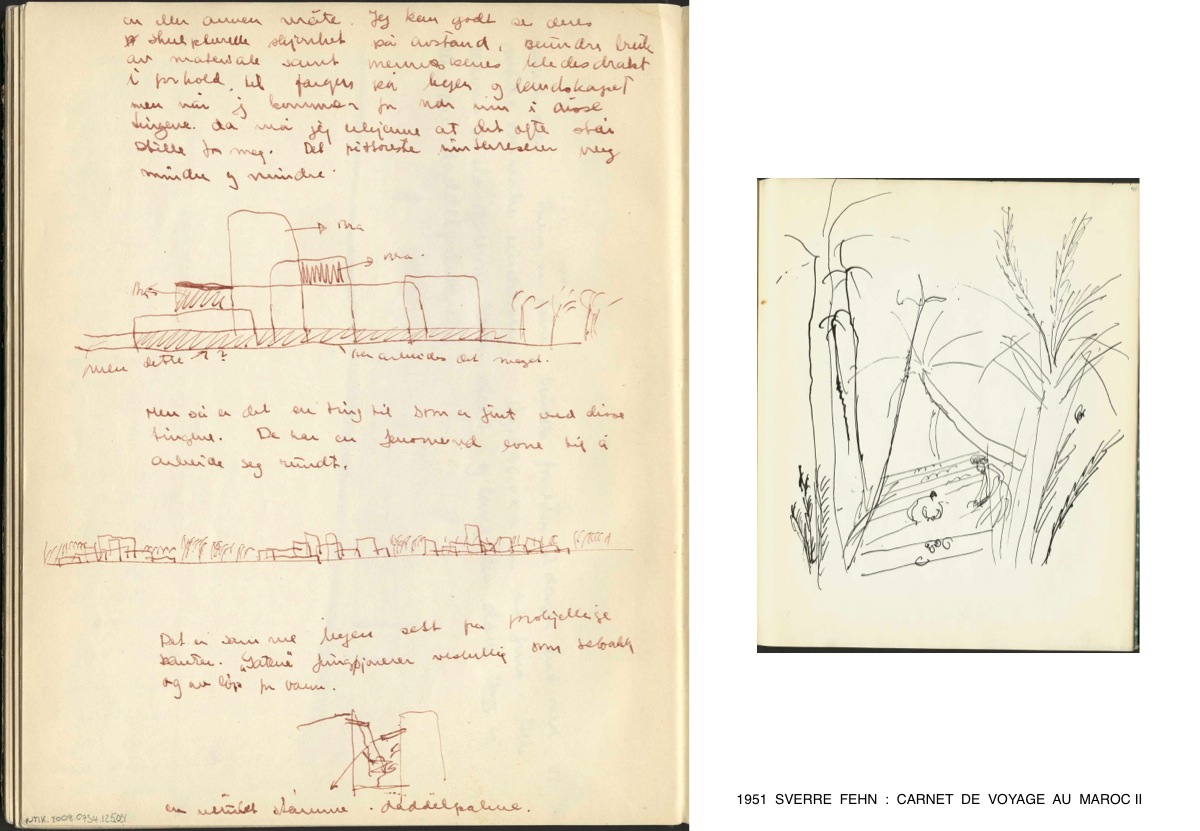 en eller annen måte. Jeg kan godt se deres
skulpturelle skjønhet på avstand, beundre bruk
av materiale samt menneskenes kledesdrakt
i forhold til farger på byen og landskapet
men når jeg kommer for nær inn i disse
tingene. da må jeg erkjenne at det ofte står
stille for meg. Det pittoreske interesserer meg
mindre og mindre.
Bra
Bra.
Bra
Men dette ?
Her arbeides det meget.
Men så er det en ting til som er fint ved disse
tingene. De har en fenomenal evne til å
arbeide seg rundt.
Det er samme byen sett fra forskjellige
kanter. "Gatene" fungsjonerer vesentlig som
og avløp for vann.
stamme. daddelpalme.
NMK.2008.0734.125.
1951 SVERRE FEHN : CARNET DE VOYAGE AU MAROC II